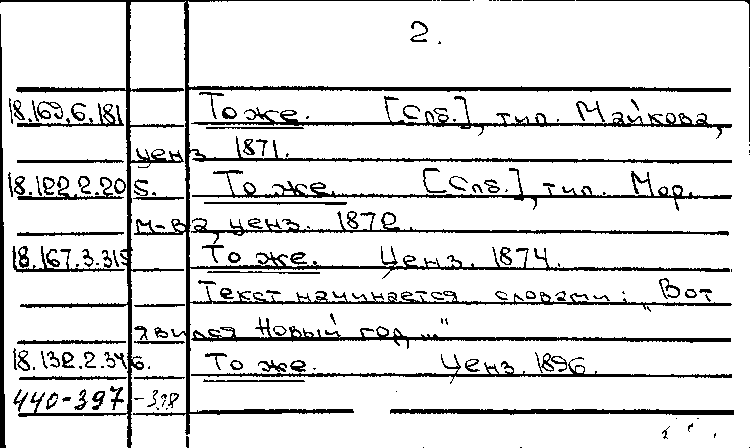 2.
18.169.6.181 То же. [Спб.], тип. Майкова,
ценз. 1871.
18.122.2.205. То же. [Спб.], тип. Мор.
м-ва, ценз. 1872.
18.167.3.315 То же. Ценз. 1874.
Текст начинается словами: „Вот
явился Новый год..."
18.132.2.346. То же. Ценз. 1896.
440-397 -398